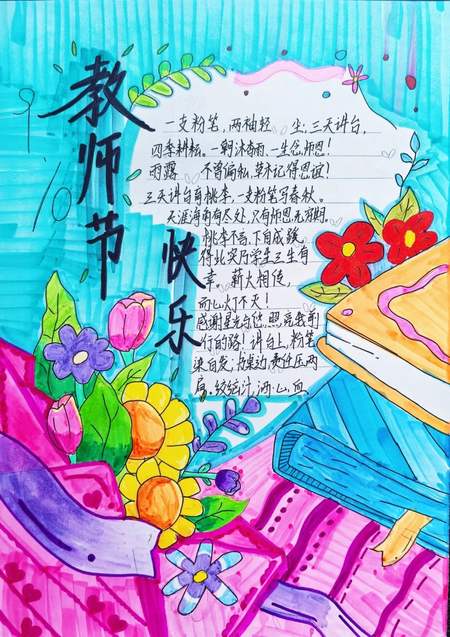 9
10
教师节
快乐
一支粉笔,两袖轻 尘;三天讲台,
四季耕耘。一朝沐春雨,一生念师恩!
雨露 不曾偏私,草木记得恩谊!
三天讲台育桃李,一支粉笔写春秋。
天涯海角有尽处,只有师恩无穷期
桃李不言,下自成蹊,
得此 学生三生有
幸。薪火相传,
而心灯不灭!
感谢星光与您,照亮我前
行的路!讲台上,粉笔
染白发;书桌边,责任压两
肩。绞 汁,沥心血